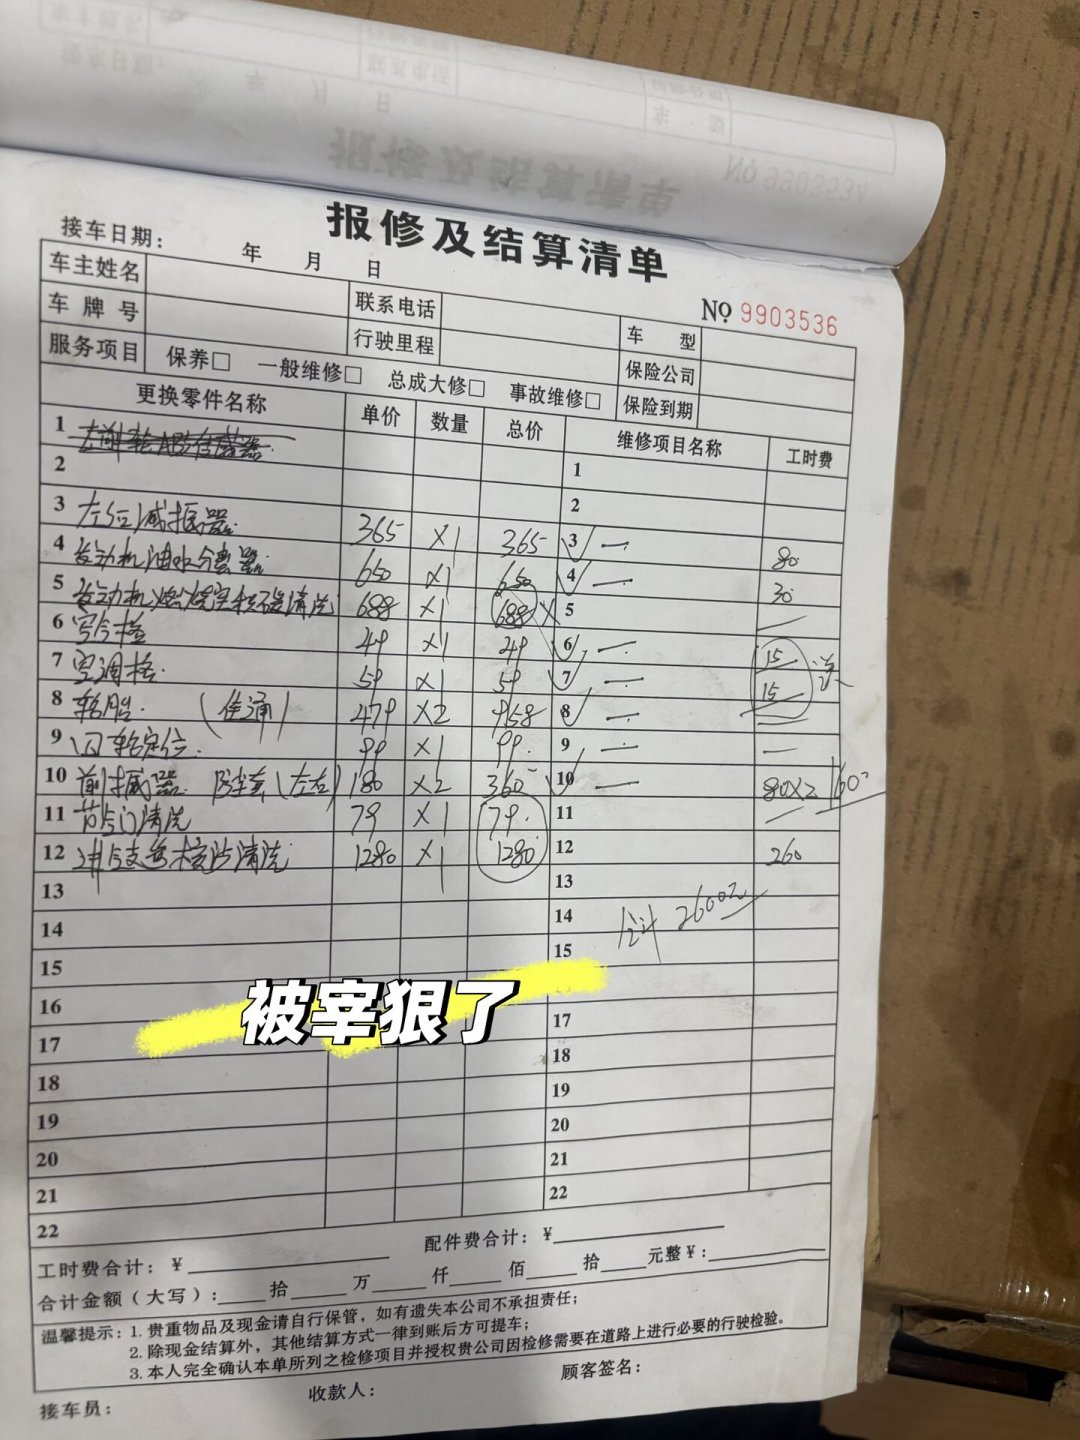 报修及结算清单
接车日期： 年 月 日
No 9903536
车主姓名 联系电话 车 型
车牌号 行驶里程 保险公司
服务项目 保养□ 一般维修□ 总成大修□ 事故维修□ 保险到期
更换零件名称 单价 数量 总价 维修项目名称 工时费
1 左前轮ABS传感器 1
2 2
3 减振器 365 ×1 365 3 80
4 发动机油水分离器 650 ×1 650 4 30
5 发动机燃烧室积碳清洗 688 ×1 688 × 5
6 空气格 49 ×1 49 6 15
7 空调格 59 ×1 59 7 15
8 轮胎 （佳通） 479 ×2 958 8
9 四轮定位 99 ×1 99 9
10 前减振器 防尘套（左右） 180 ×2 360 10 80×2 160
11 节气门清洗 79 ×1 79 11
12 进气支管核沙清洗 1280 ×1 1280 12 260
13 13
14 14 合计 2600元
15 15
被宰狠了
16
17 17
18 18
19 19
20 20
21 21
22 22
工时费合计：￥ 配件费合计：￥
合计金额（大写）： 拾 万 仟 佰 拾 元整￥：
温馨提示：1. 贵重物品及现金请自行保管，如有遗失本公司不承担责任；
2. 除现金结算外，其他结算方式一律到账后方可提车；
3. 本人完全确认本单所列之检修项目并授权贵公司因检修需要在道路上进行必要的行驶检验。
接车员： 收款人： 顾客签名：